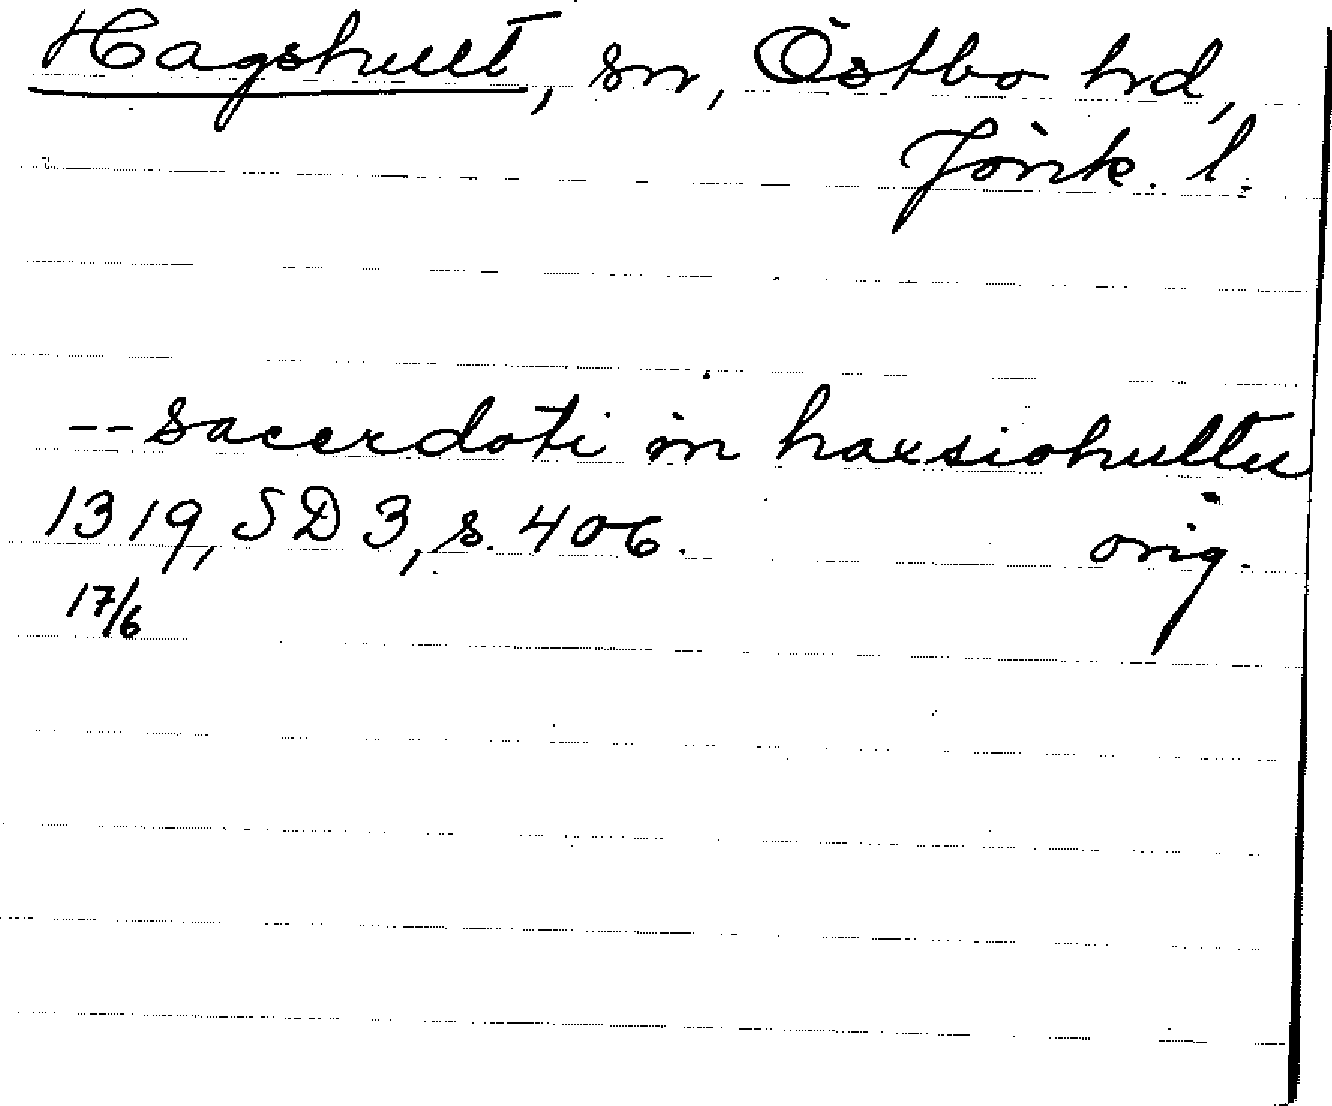 Hagshult, sn, Östbo hd,
Jönk. l.
-- sacerdoti in haxsiohultu
1319, SD 3, s. 406. orig.
17/6